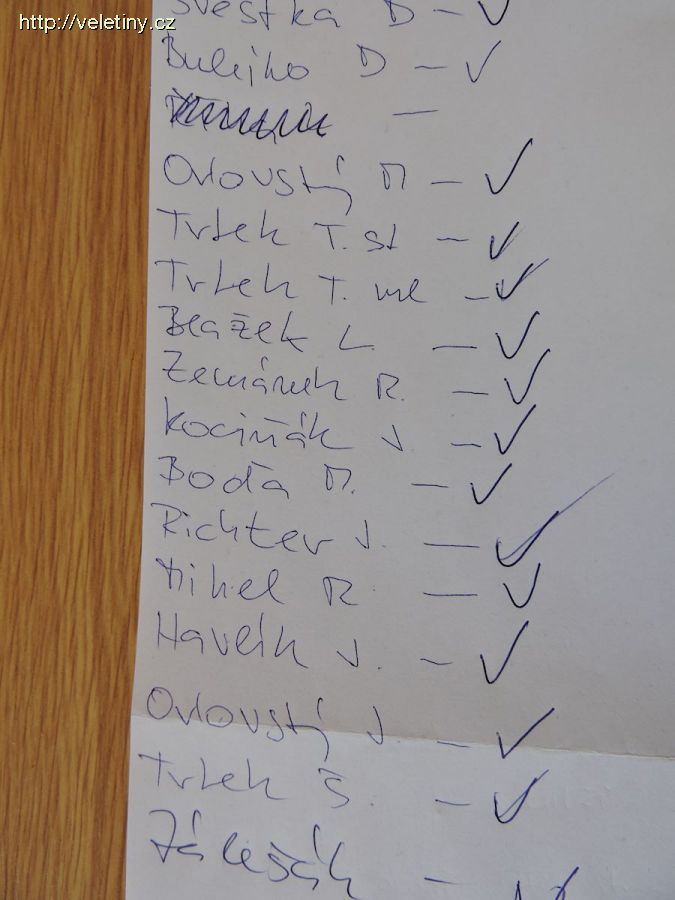 http://veletiny.cz
Švestka D - ✓
D - ✓
-
Orlovský M - ✓
Trtek T. st - ✓
Trtek T. ml - ✓
Blažek L. - ✓
Zemánek R. - ✓
Kociňák J - ✓
Boďa M. - ✓
Richter J. - ✓
Mikel R - ✓
Havlík J. - ✓
Orlovský J. - ✓
Trtek Š. - ✓
Zálešák - ✓